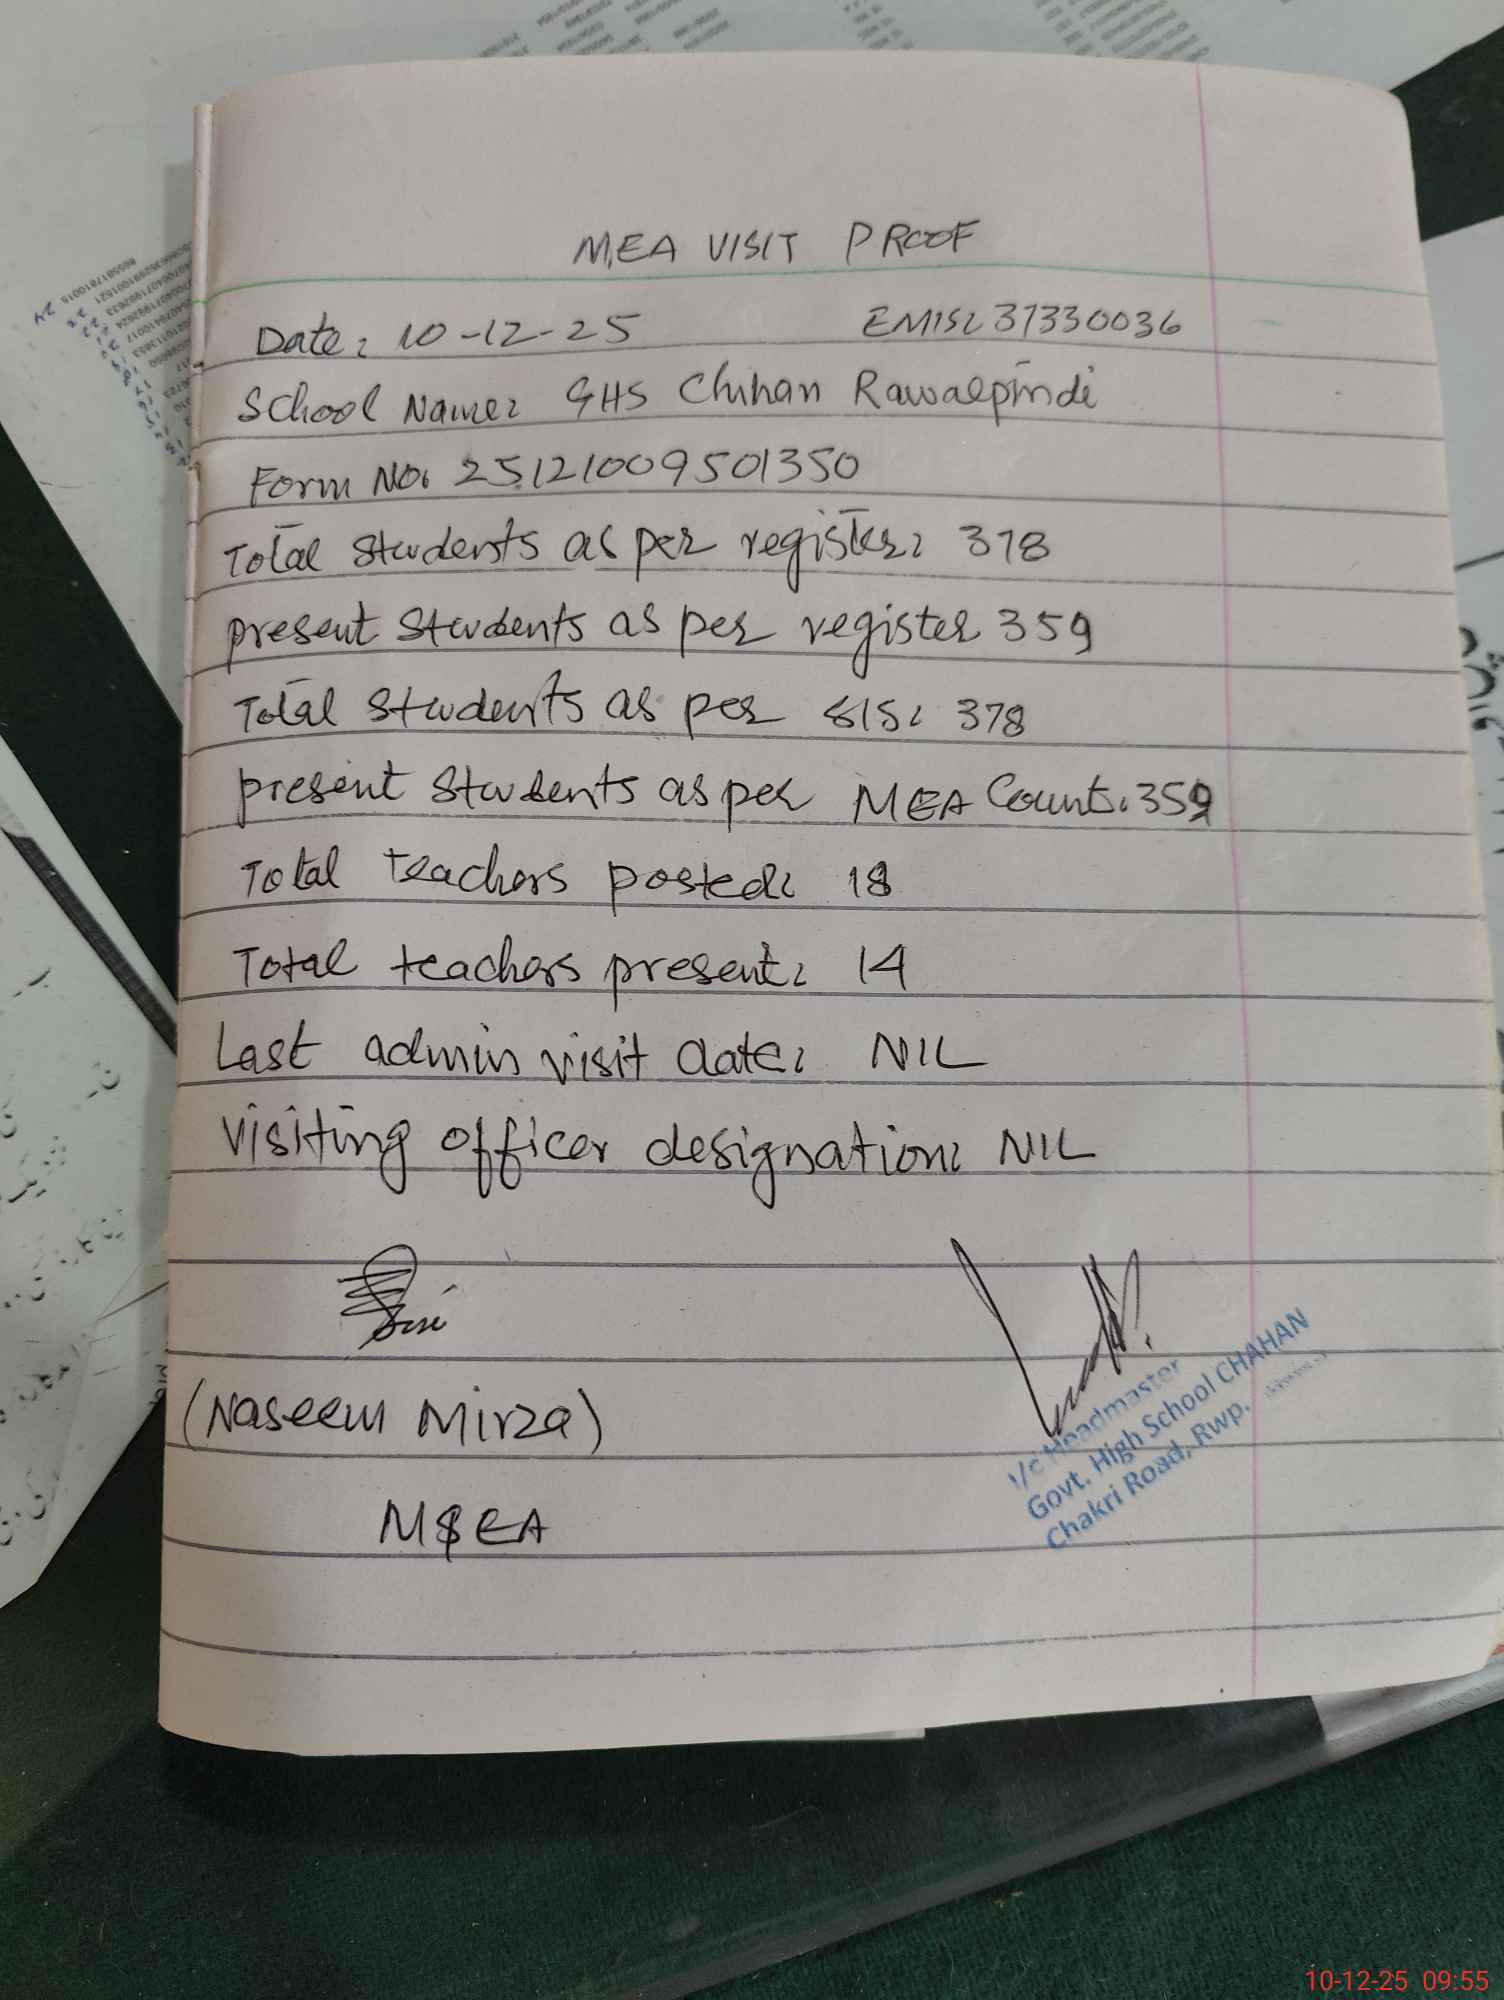 MEA VISIT PROOF
Date: 10-12-25 EMIS: 37330036
School Name: GHS Chihan Rawalpindi
Form No: 25121009501350
Total Students as per register: 378
present Students as per register 359
Total Students as per SIS: 378
present Students as per MEA Count: 359
Total teachers posted: 18
Total teachers present: 14
Last admin visit date: NIL
Visiting officer designation: NIL
(Naseem Mirza)
M&EA
I/c Headmaster
Govt. High School CHAHAN
Chakri Road, Rwp.
10-12-25 09:55